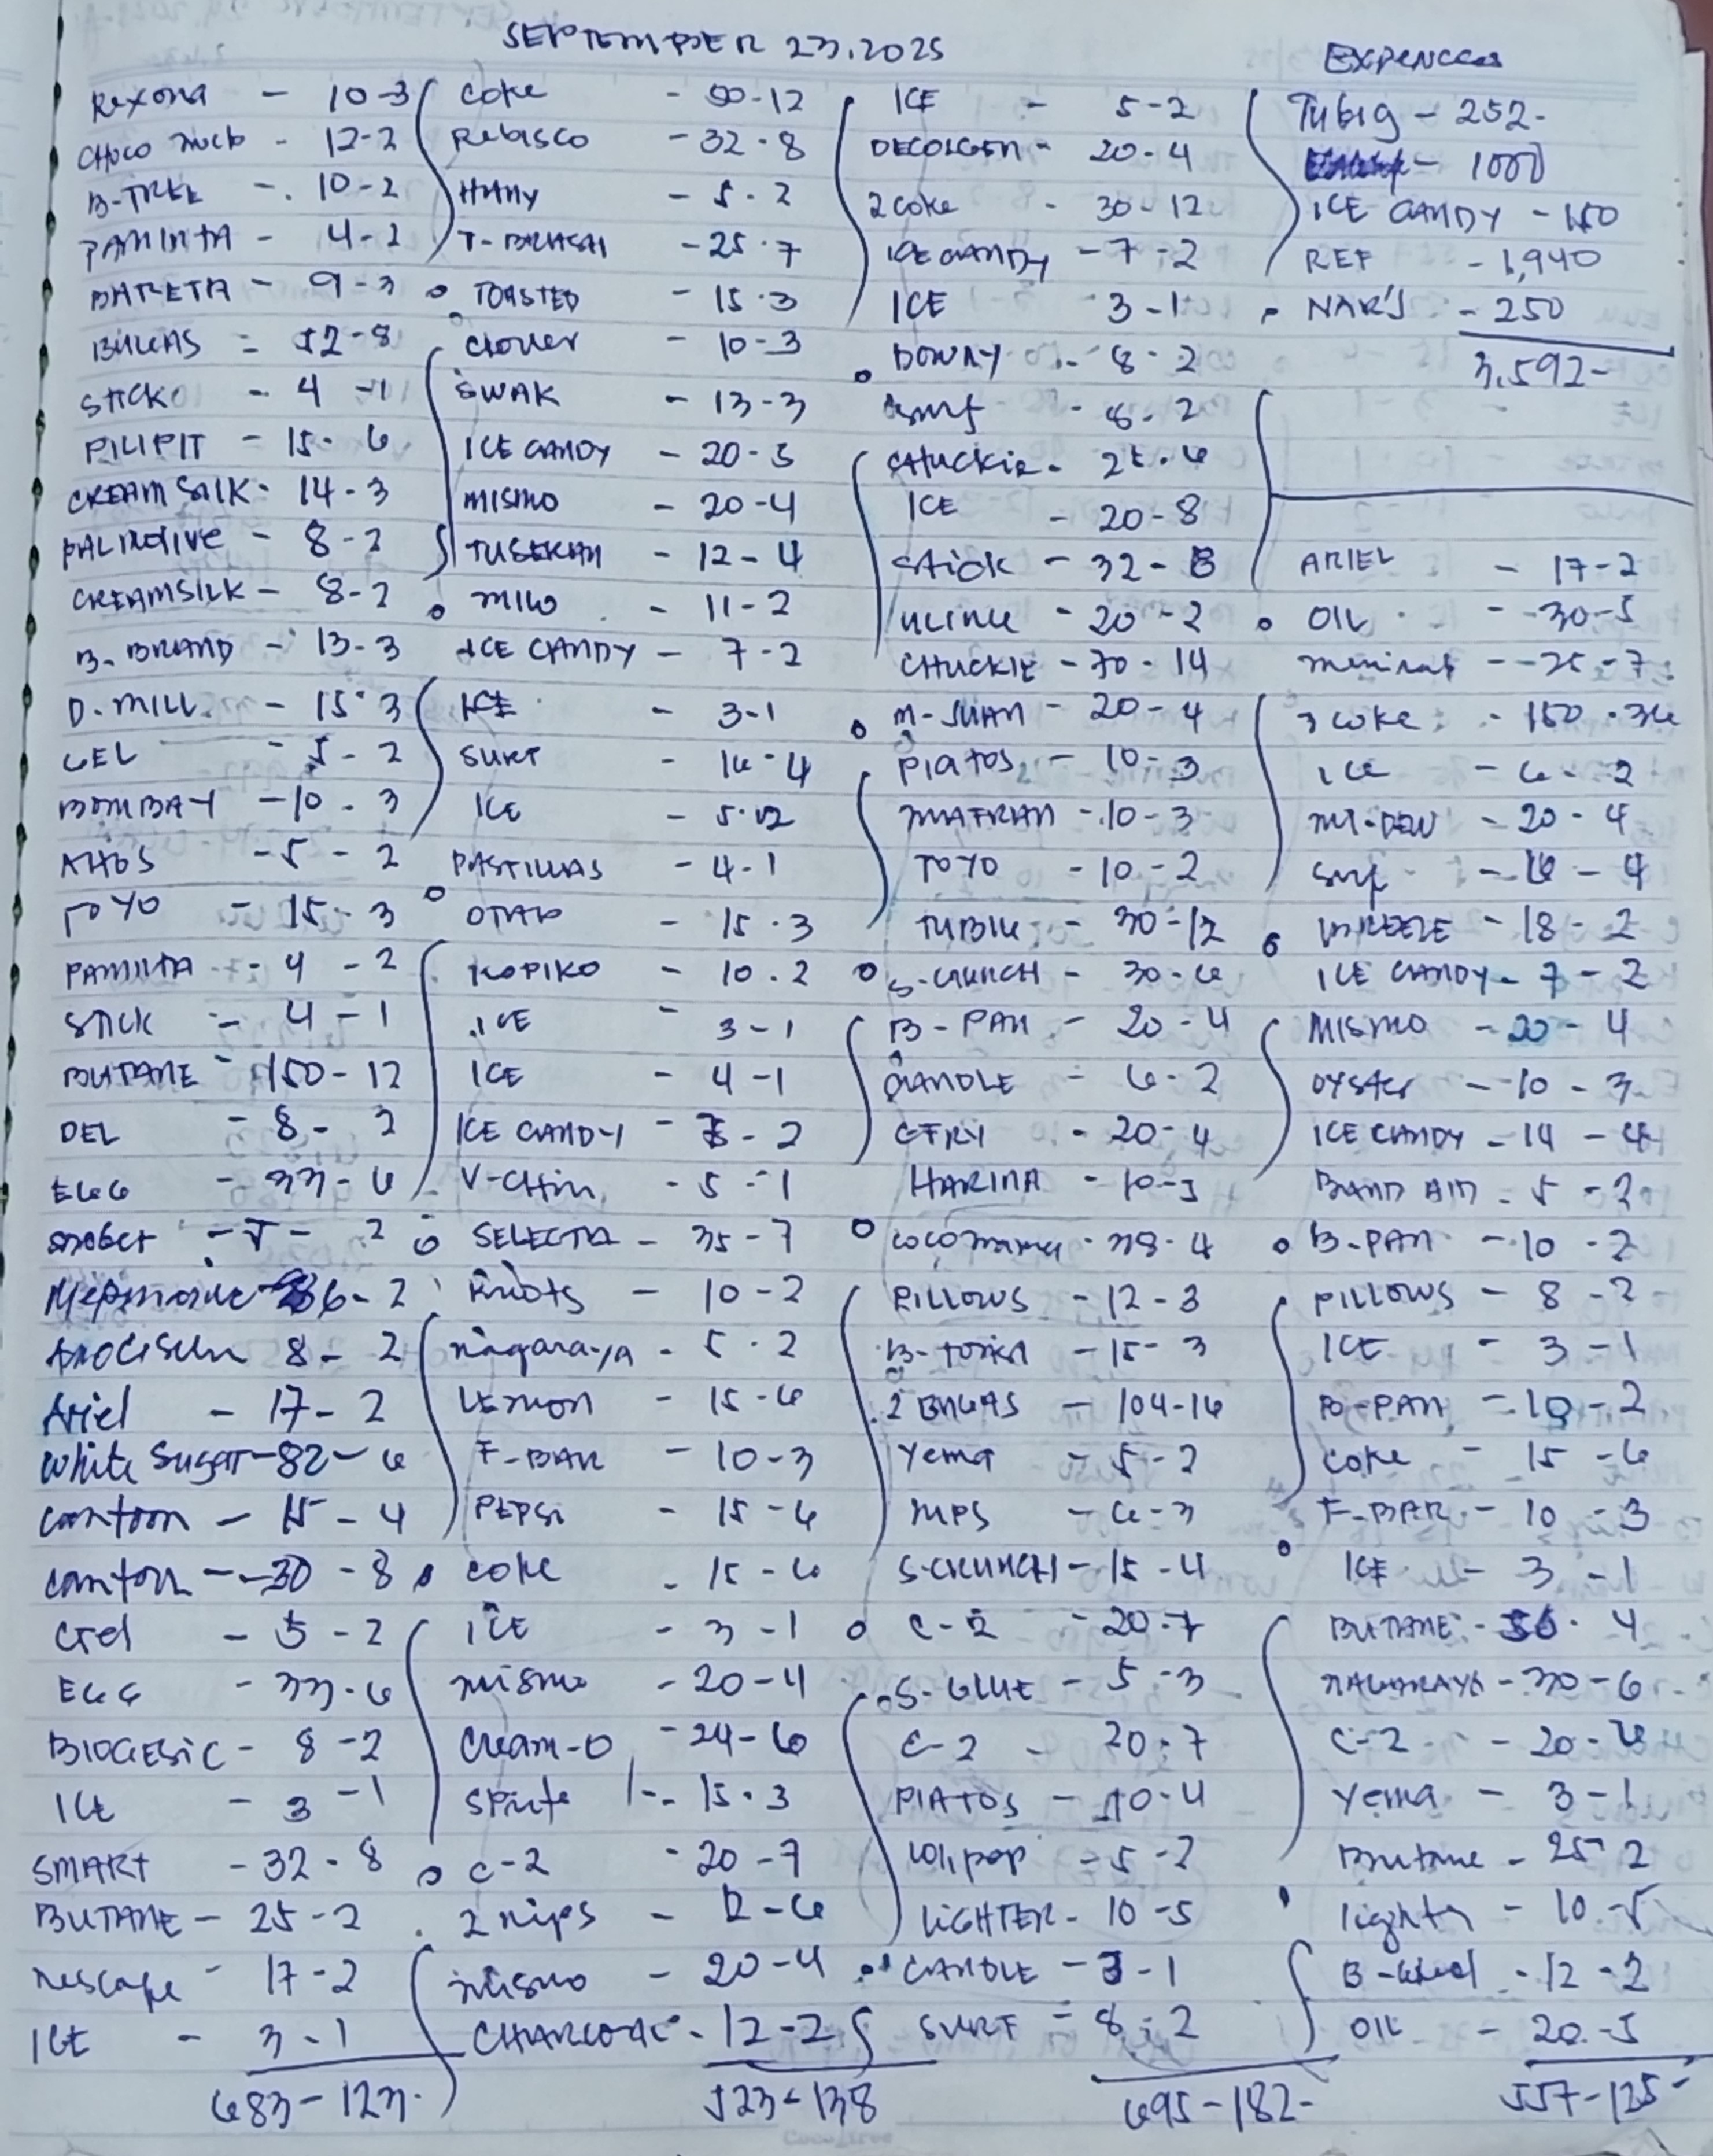 SEPTEMBER 23.2025
Rexona - 10-3
CHOCO - 12-2
B-TREE - 10-2
PAMINTA - 4-2
BARETA - 9-3
BIGAS - 52-8
STICKO - 4-1
PILIPIT - 15-6
CREAM SILK - 14-3
PALMOLIVE - 8-2
CREAMSILK - 8-2
B. BRAND - 13-3
D. MILL - 15-3
GEL - 5-2
BOMBAY - 10-3
AHOS - 5-2
TOYO - 15-3
PAMINTA - 4-2
STICK - 4-1
BUTANE - 150-12
DEL - 8-2
EGG - 33-6
- 5-2
36-2
8-2
Ariel - 17-2
White Sugar - 82-6
cantoon - 15-4
canton - 30-8
Gel - 5-2
EGG - 33-6
BIOGESIC - 8-2
ICE - 3-1
SMART - 32-8
BUTANE - 25-2
nescafe - 17-2
ICE - 3-1
683-123-
Coke - 50-12
Rebisco - 32-8
HANY - 5-2
T-BRUSH - 25-7
TOASTED - 15-3
Clover - 10-3
SWAK - 13-3
ICE CANDY - 20-5
MISMO - 20-4
- 12-4
MILO - 11-2
ICE CANDY - 7-2
ICE - 3-1
SURF - 16-4
ICE - 5-2
PASTILLAS - 4-1
OTAP - 15-3
KOPIKO - 10-2
ICE - 3-1
ICE - 4-1
ICE CANDY - 7-2
V-CHIN - 5-1
SELECTA - 35-7
Knots - 10-2
niagara-ya - 5-2
LEMON - 15-6
F-BAR - 10-3
PEPSI - 15-6
coke - 15-6
ICE - 3-1
mismo - 20-4
Cream-O - 24-6
Sprite - 15-3
C-2 - 20-7
2 nips - 12-6
mismo - 20-4
CHARCOAL - 12-2
523-138
ICE - 5-2
DECOLGEN - 20-4
2 coke - 30-12
ICE CANDY - 7-2
ICE - 3-1
DOWNY - 8-2
Surf - 8-2
CHUCKIE - 25-6
ICE - 20-8
Stick - 32-8
- 20-2
CHUCKIE - 70-14
M-JUAN - 20-4
Piatos - 10-3
- 10-3
TOYO - 10-2
TUBIG - 30-12
S-CRUNCH - 30-6
B-PAN - 20-4
CANDLE - 6-2
GTRY - 20-4
HARINA - 10-3
cocomama - 38-4
PILLOWS - 12-3
- 15-3
2 BIGAS - 104-16
Yema - 5-2
MPS - 6-3
S-CRUNCH - 15-4
C-2 - 20-7
S-GLUE - 5-3
C-2 - 20-7
PIATOS - 10-4
lolipop - 5-2
LIGHTER - 10-5
CANDLE - 3-1
SURF - 8-2
695-182-
EXPENCES
Tubig - 252-
- 1000
ICE CANDY - 150
REF - 1,940
NAR'S - 250
3,592-
ARIEL - 17-2
OIL - 30-5
- 25-7
3 coke - 150-36
ice - 6-2
MT-DEW - 20-4
Surf - 16-4
- 18-2
ICE CANDY - 7-2
MISMO - 20-4
OYSTER - 10-3
ICE CANDY - 14-4
BAND AID - 5-2
B-PAN - 10-2
PILLOWS - 8-2
ICE - 3-1
B-PAN - 10-2
Coke - 15-6
F-BAR - 10-3
ICE - 3-1
BUTANE - 50-4
NAGARAYA - 30-6
C-2 - 20-6
Yema - 3-1
Butane - 25-2
lighter - 10-5
- 12-2
OIL - 20-5
557-135-